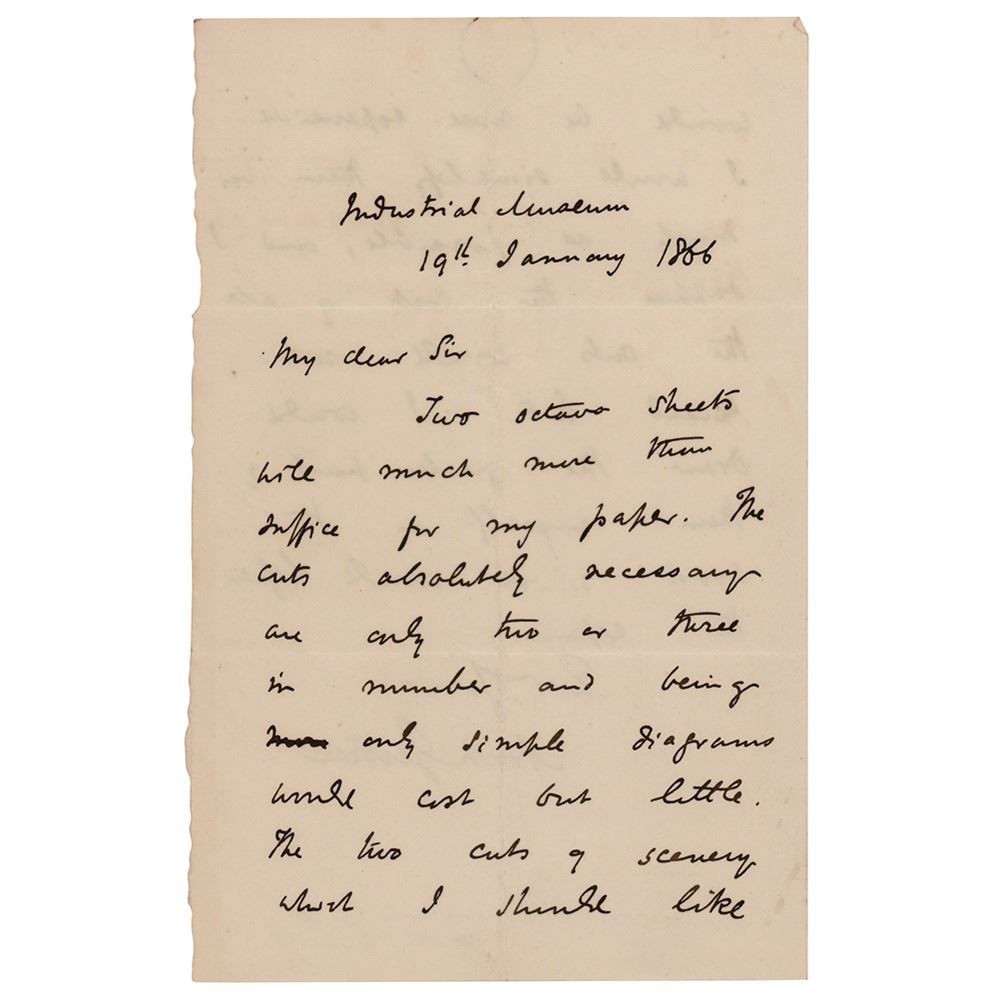 Industrial Museum
19th January 1866
My dear Sir
Two octavo sheets
will much more than
suffice for my paper. The
cuts absolutely necessary
are only two or three
in number and being
more only simple diagrams
would cost but little.
The two cuts of scenery
which I should like